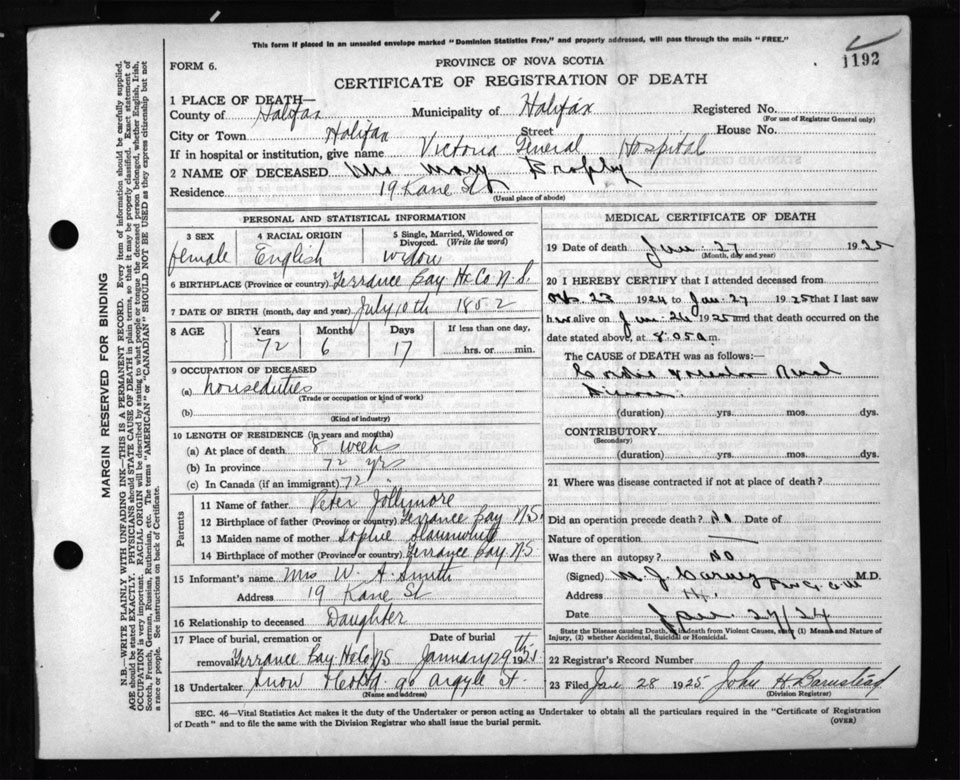 This form if placed in an unsealed envelope marked "Dominion Statistics Free," and properly addressed, will pass through the mails "FREE."
1192
FORM 6.
PROVINCE OF NOVA SCOTIA
CERTIFICATE OF REGISTRATION OF DEATH
1 PLACE OF DEATH—
County of Halifax Municipality of Halifax Registered No.
(For use of Registrar General only)
City or Town Halifax Street House No.
If in hospital or institution, give name Victoria General Hospital
2 NAME OF DECEASED Mrs Mary Brophy
Residence 19 Kane St
(Usual place of abode)
PERSONAL AND STATISTICAL INFORMATION
3 SEX 4 RACIAL ORIGIN 5 Single, Married, Widowed or Divorced. (Write the word)
female English widow
6 BIRTHPLACE (Province or country) Terrance Bay Hx Co N.S.
7 DATE OF BIRTH (month, day and year) July 10th 1852
8 AGE Years Months Days If less than one day,
72 6 17 hrs. or min.
9 OCCUPATION OF DECEASED
(a) houseduties
(Trade or occupation or kind of work)
(b)
(Kind of industry)
10 LENGTH OF RESIDENCE (in years and months)
(a) At place of death 8 weeks
(b) In province 72 yrs
(c) In Canada (if an immigrant) 72 "
Parents
11 Name of father Peter Jollymore
12 Birthplace of father (Province or country) Terrance Bay NS.
13 Maiden name of mother Sophie Slaunwhite
14 Birthplace of mother (Province or country) Terrance Bay NS
15 Informant's name Mrs W. A. Smith
Address 19 Kane St
16 Relationship to deceased Daughter
17 Place of burial, cremation or removal Terrance Bay Hx Co NS Date of burial January 29th 1925
18 Undertaker Snow & Co Ltd. 90 Argyle St.
(Name and address)
MEDICAL CERTIFICATE OF DEATH
19 Date of death Jan. 27 1925
(Month, day and year)
20 I HEREBY CERTIFY that I attended deceased from
23 1924 to Jan. 27 1925 that I last saw
h er alive on Jan. 26 1925 and that death occurred on
date stated above, at 8.05 a m.
The CAUSE OF DEATH was as follows:—
Renal
Disease.
(duration) yrs. mos. dys.
CONTRIBUTORY
(Secondary)
(duration) yrs. mos. dys.
21 Where was disease contracted if not at place of death?
Did an operation precede death? No Date of
Nature of operation
Was there an autopsy? No
(Signed) M.D.
Address
Date Jan. 27/24
State the Disease causing Death, or in death from Violent Causes, state (1) Means and Nature of Injury, (2) whether Accidental, Suicidal or Homicidal.
22 Registrar's Record Number
23 Filed Jan 28 1925 John H Barnstead
(Division Registrar)
SEC. 46—Vital Statistics Act makes it the duty of the Undertaker or person acting as Undertaker to obtain all the particulars required in the "Certificate of Registration
of Death" and to file the same with the Division Registrar who shall issue the burial permit. (OVER)
MARGIN RESERVED FOR BINDING
N.B.—WRITE PLAINLY WITH UNFADING INK—THIS IS A PERMANENT RECORD. Every item of information should be carefully supplied.
AGE should be stated EXACTLY. PHYSICIANS should STATE CAUSE OF DEATH in plain terms, so that it may be properly classified. Exact statement of
OCCUPATION is very important. RACIAL ORIGIN will be described by stating to what people or tongue the deceased person belonged, whether English, Irish,
Scotch, French, German, Russian, Ruthenian, etc. The terms "AMERICAN" or "CANADIAN" SHOULD NOT BE USED as they express citizenship but not
a race or people. See instructions on back of Certificate.